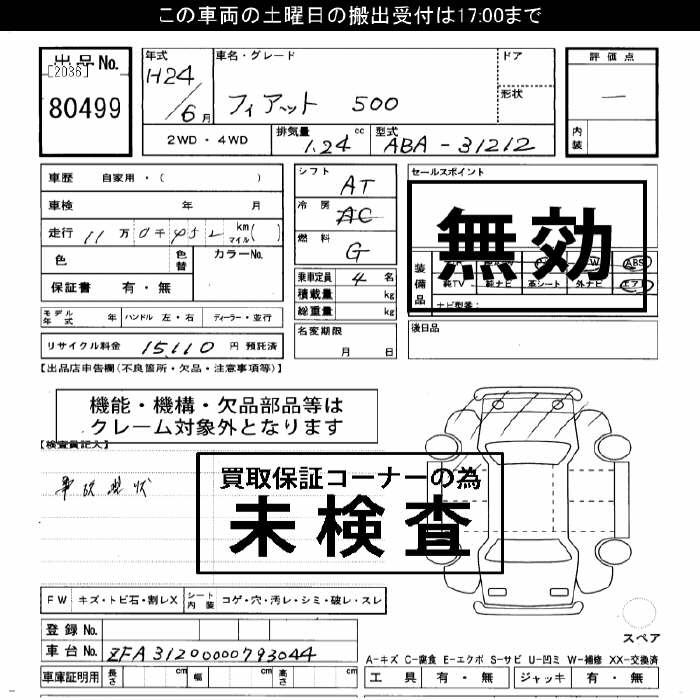 この車両の土曜日の搬出受付は17:00まで
出品No.
[2036]
80499
年式
H24/6月
車名・グレード
フィアット 500
ドア
形状
2WD・4WD
排気量 1.24 cc
型式 ABA-31212
評価点
—
内装
車歴 自家用・( )
車検 年 月
走行 11万0千452 km マイル( )
色
色替
カラーNo.
保証書 有・無
モデル年式 年
ハンドル 左・右
ディーラー・並行
リサイクル料金 15,110 円 預託済
シフト AT
冷房 AC
燃料 G
乗車定員 4 名
積載量 kg
総重量 kg
名変期限
月 日
セールスポイント
無効
装備品
ABS
純TV 純ナビ 革シート 外ナビ エア
ナビ型番:
後日品
【出品店申告欄(不良箇所・欠品・注意事項等)】
機能・機構・欠品部品等は
クレーム対象外となります
【検査員記入】
事故現状
買取保証コーナーの為
未検査
FW キズ・トビ石・割レX
シート内装 コゲ・穴・汚レ・シミ・破レ・スレ
登録No.
車台No. ZFA31200000793044
車庫証明用 長さ cm 幅 cm 高さ cm
スペア
A-キズ C-腐食 E-エクボ S-サビ U-凹ミ W-補修 XX-交換済
工具 有・無 ジャッキ 有・無